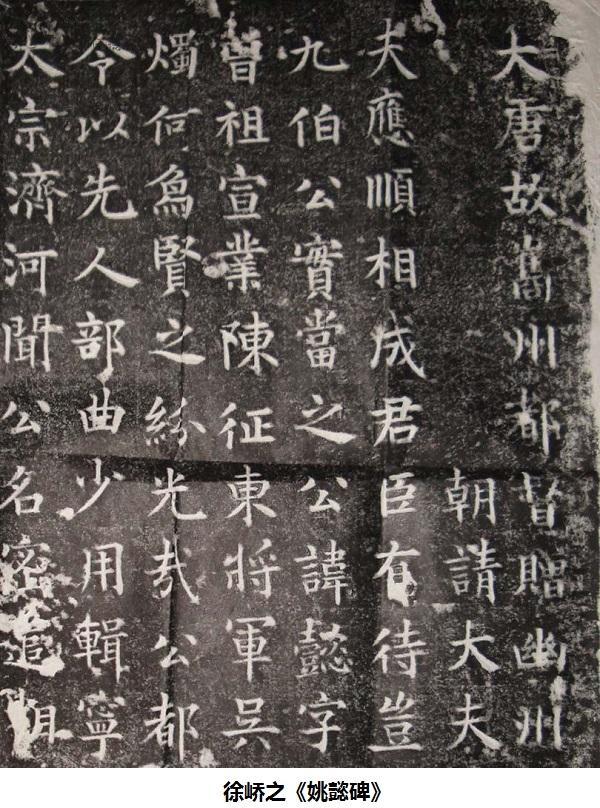 大唐故巂州都督贈幽州
朝請大夫
夫應順相成君臣有待豈
九伯公實當之公諱懿字
曾祖宣業陳征東將軍吳
燭何為賢之紛光哉公都
令以先人部曲少用輯寧
太宗濟河聞公名密
徐峤之《姚懿碑》